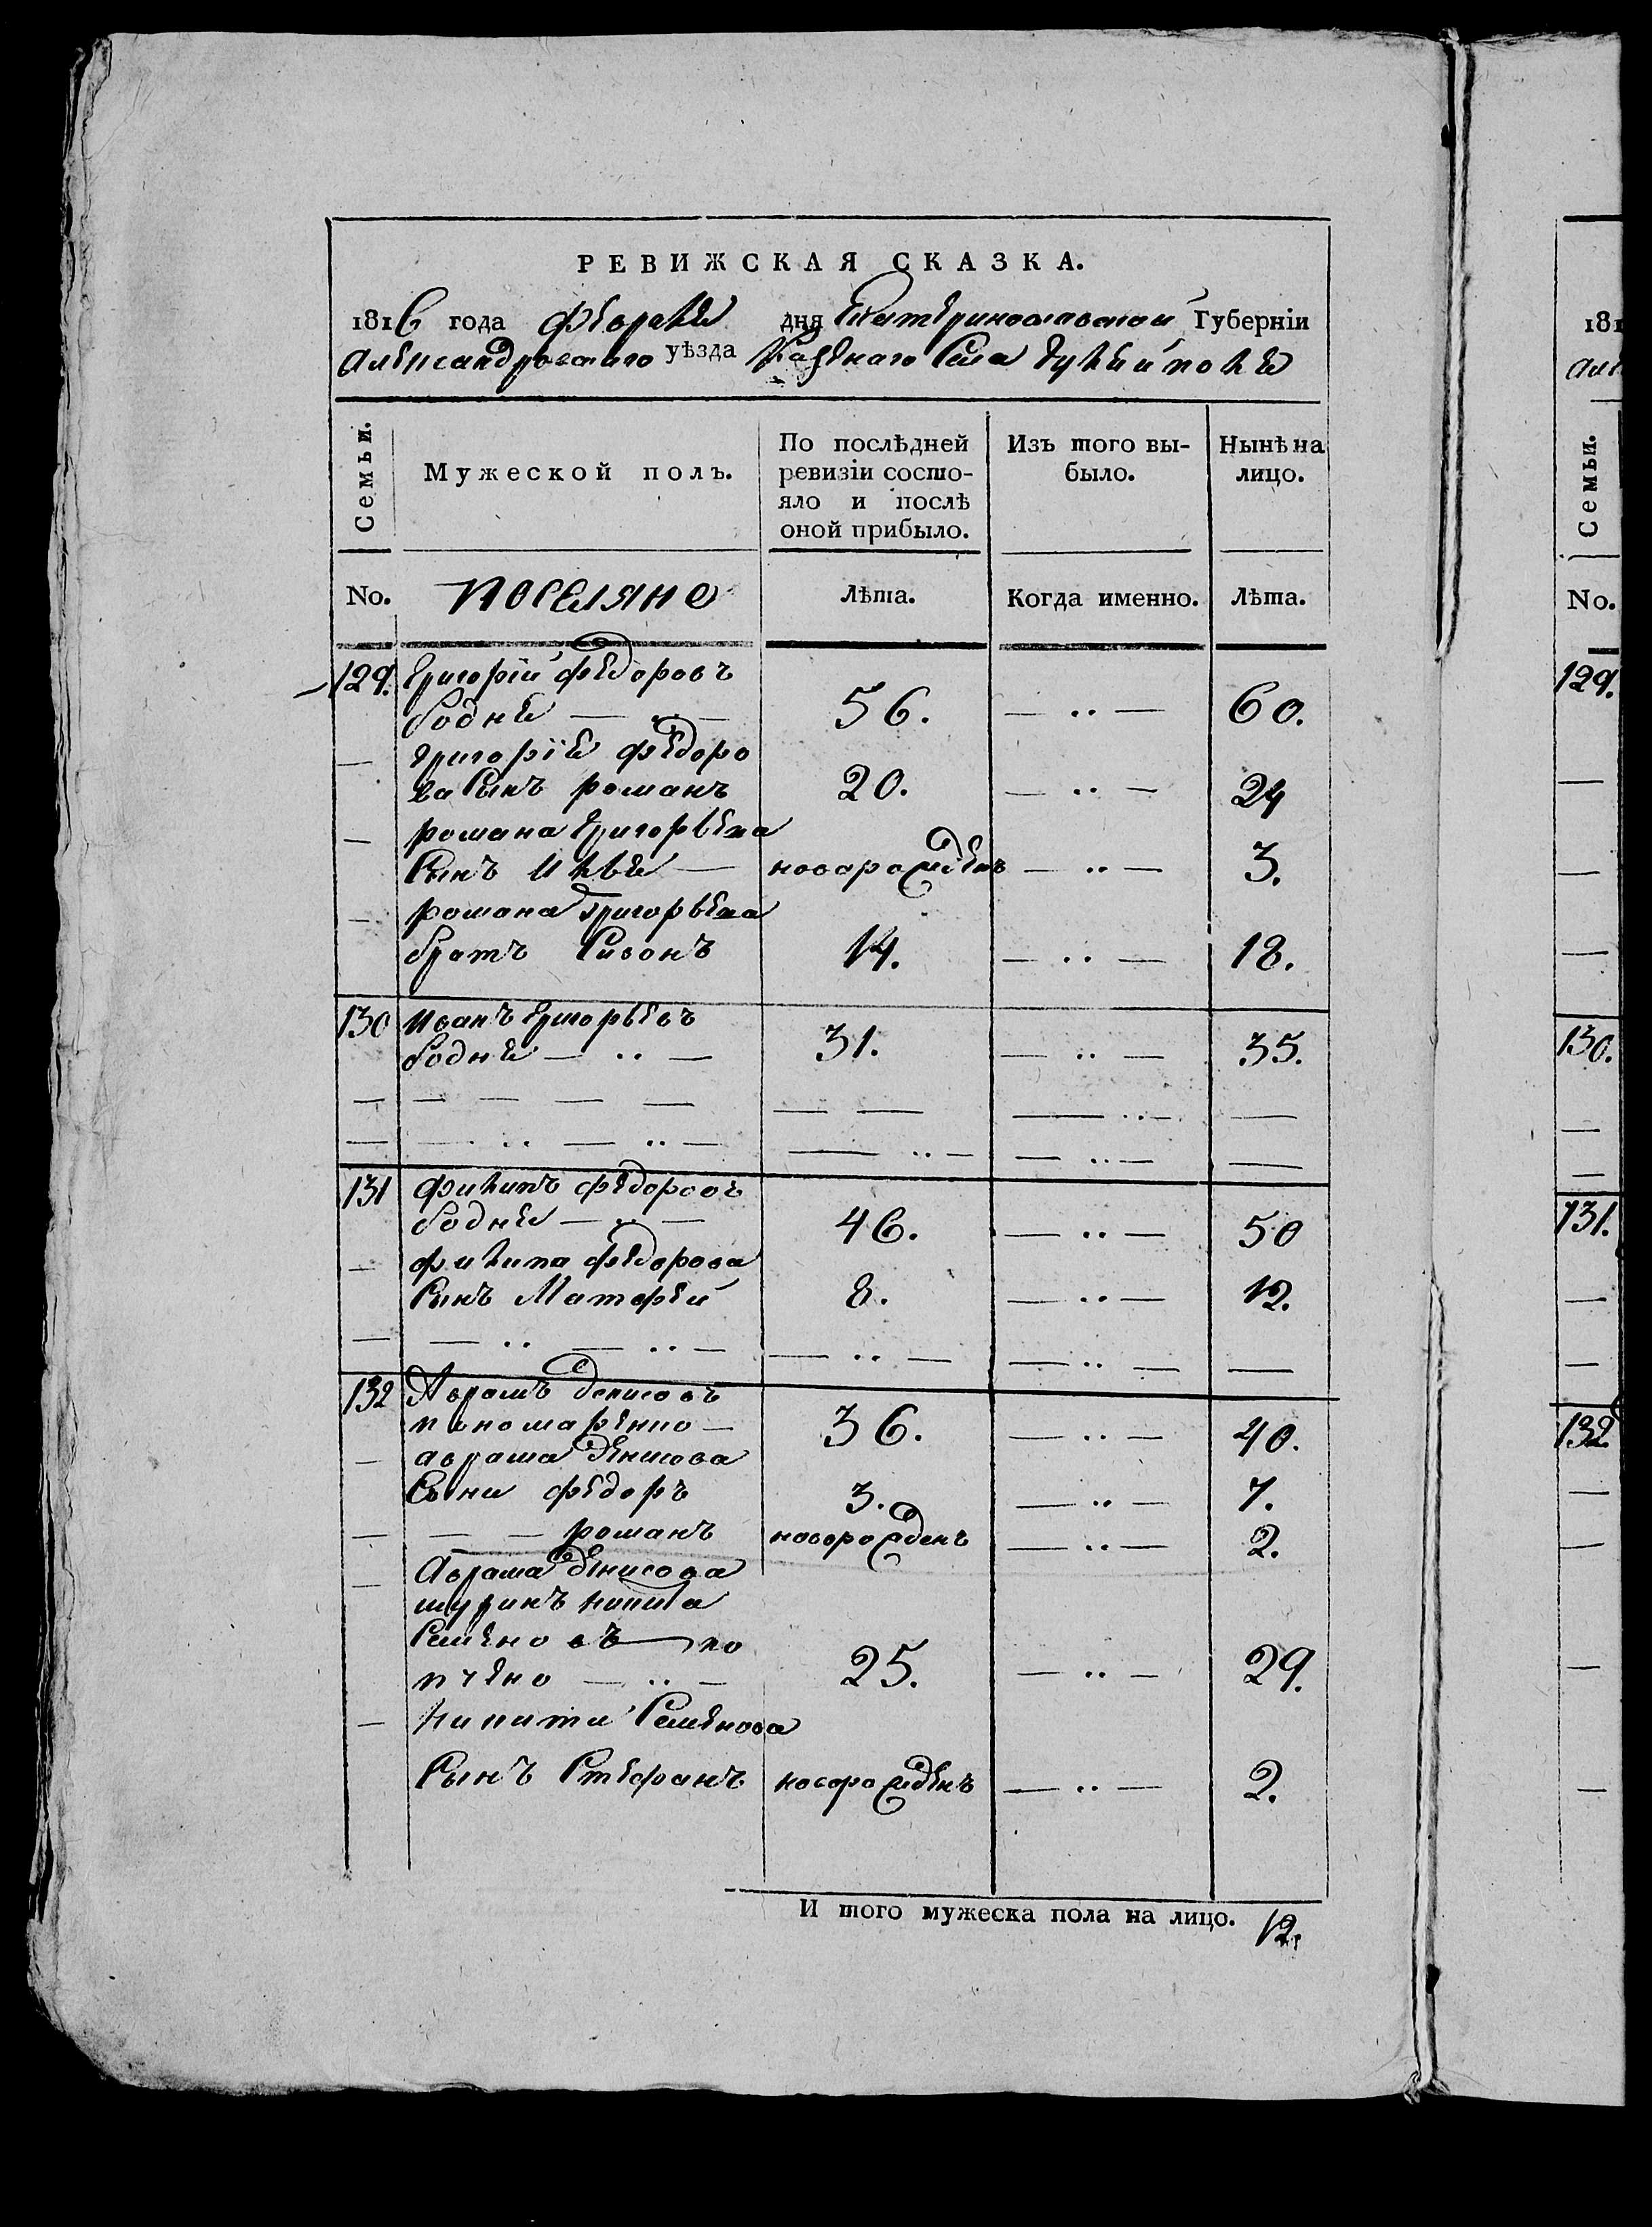 РЕВИЖСКАЯ СКАЗКА.
1816 года февраля дня Екатеринославской Губерніи
Александровского уѣзда Казенаго Села Гуляйполя
Семьи.
Мужеской полъ.
По послѣдней ревизіи состо-
яло и послѣ
оной прибыло.
Изъ того вы-
было.
Нынѣ на
лицо.
No. поселяне Лѣта. Когда именно. Лѣта.
129. Григорій федоровъ
бодня — 56. — .. — 60.
— григорія федоро
ва Сынъ романъ 20. — .. — 24
— романа григорьева
Сынъ Илья — новорожденъ — .. — 3.
— романа григорьева
братъ 14. — .. — 18.
130 иванъ григорьевъ
бодня — .. — 31. — .. — 35.
131 филипъ федоровъ
бодня — .. — 46. — .. — 50
— филипа федорова
Сынъ Матфей 8. — .. — 12.
132 Аврамъ денисовъ
пономаренко — 36. — .. — 40.
— аврама денисова
Сыни федоръ 3. — .. — 7.
— — — романъ новорожденъ — .. — 2.
— Аврама денисова
шуринъ никита
Семеновъ — ко
пчено — .. — 25. — .. — 29.
— никиты Семенова
Сынъ Стефанъ новорожденъ — .. — 2.
И того мужеска пола на лицо. 12.
181
Але
Семьи.
No.
129.
130.
131.
132